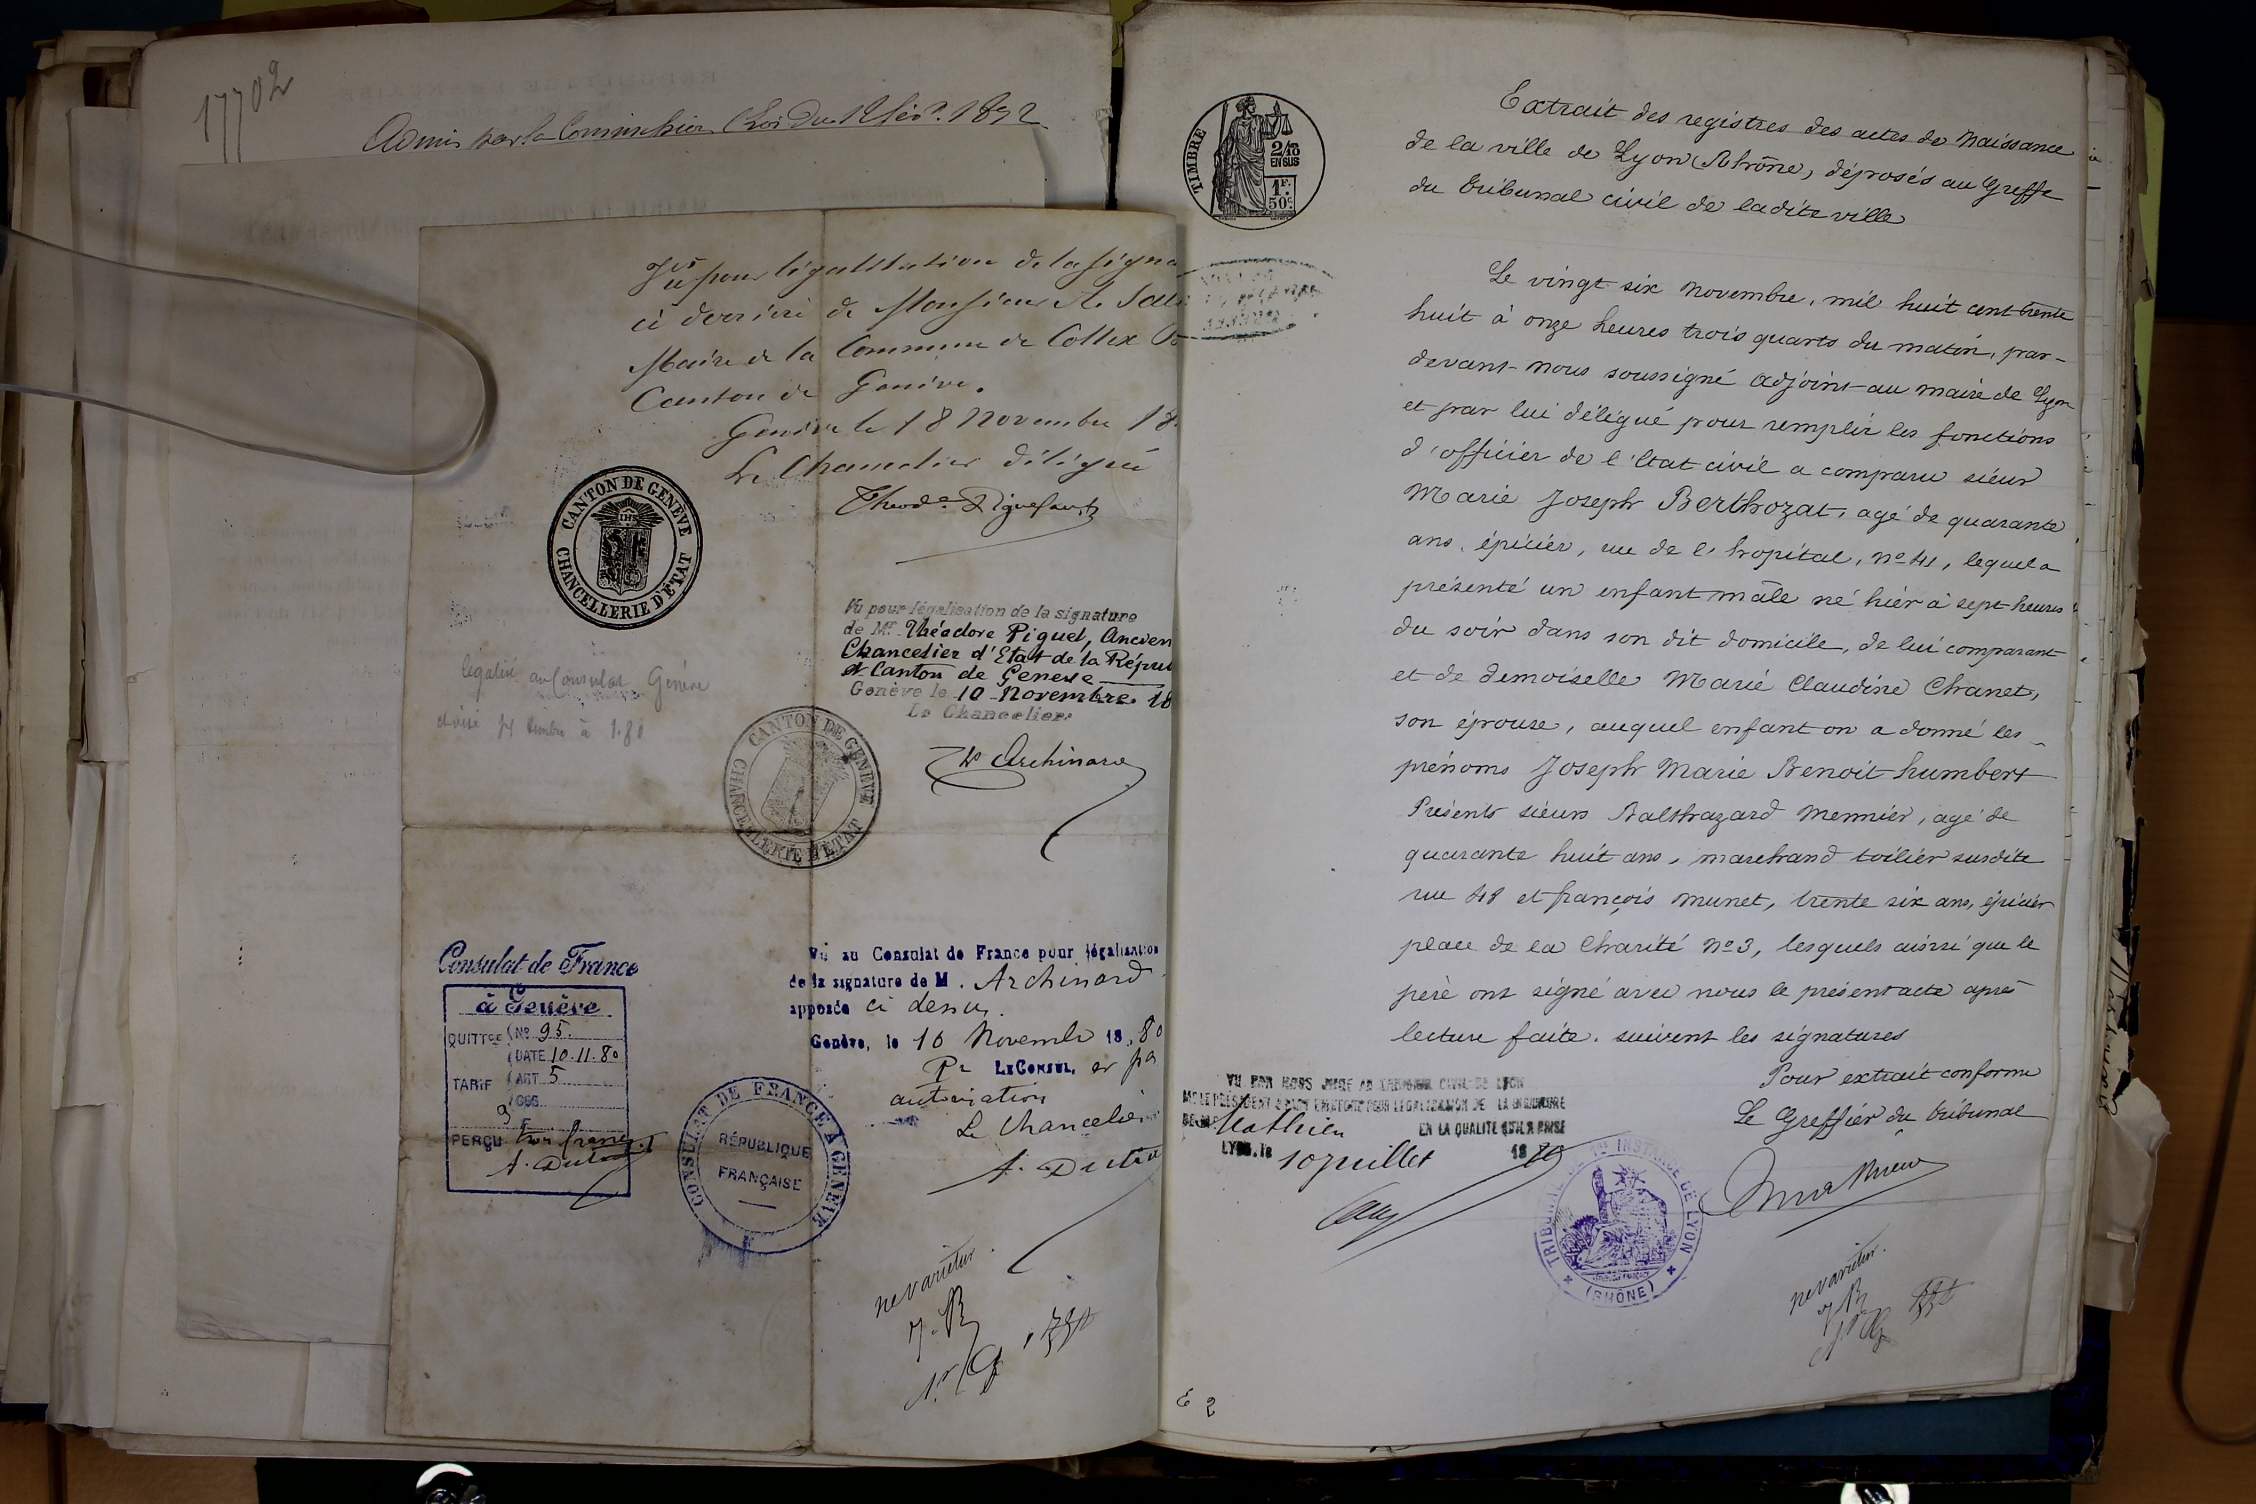 17702
Admis par la Commission (Loi du 12 fév. 1872
Vu pour légalisation de la signa
ci derrière de Monsieur A.
Maire de la Commune de Collex
Canton de Genève.
Genève le 18 Novembre 18
Le Chancelier délégué
CANTON DE GENEVE
CHANCELLERIE D'ÉTAT
IHS
Vu pour légalisation de la signature
de Mr Théodore Piguet, Ancien
Chancelier d'Etat de la Répu
et Canton de Genève
Genève le 10 Novembre 18
Le Chancelier
légalisé au Consulat Genève
timbre à 1.80
Archinard
CANTON DE GENEVE
CHANCELLERIE D'ÉTAT
Consulat de France
à Genève
QUITTCE No 95.
DATE 10.11.80
TARIF ART 5
OBS
3 F
PERÇU trois francs
Vu au Consulat de France pour légalisation
de la signature de M. Archinard
apposée ci dessus.
Genève, le 10 Novembre 1880
Pr LE CONSUL, et par
autorisation
Le Chancelier
CONSULAT DE FRANCE A GENEVE
RÉPUBLIQUE
FRANÇAISE
ne varietur
TIMBRE
2/10
EN SUS
1F.
50c.
Extrait des registres des actes de Naissance
de la ville de Lyon (Rhône, déposés au Greffe
du tribunal civil de ladite ville
Le vingt six Novembre, mil huit cent trente
huit à onze heures trois quarts du matin, par-
devant nous soussigné adjoint au maire de Lyon
et par lui délégué pour remplir les fonctions
d'officier de l'Etat civil a comparu sieur
Marie Joseph Berthozat, agé de quarante
ans, épicier, rue de l'hopital, No 41, lequel a
présenté un enfant mâle né hier à sept heures
du soir dans son dit domicile, de lui comparant
et de demoiselle Marie Claudine Chanet,
son épouse, auquel enfant on a donné les
prénoms Joseph Marie Benoit humbert
Présents sieurs Balthazard Mennier, agé de
quarante huit ans, marchand toilier susdite
rue 48 et françois Munet, trente six ans, épicier
place de la Charité No 3, lesquels ainsi que le
père ont signé avec nous le présent acte après
lecture faite. suivent les signatures
Pour extrait conforme
Le Greffier du tribunal
Mathieu
VU PAR NOUS JUGE AU TRIBUNAL CIVIL DE LYON
POUR LEGALISATION DE LA SIGNATURE
DE M. Mathieu EN LA QUALITE QU'IL A PRISE
LYON, le 10 juillet 18
TRIBUNAL DE 1re INSTANCE DE LYON
(RHÔNE)
ne varietur
E 2